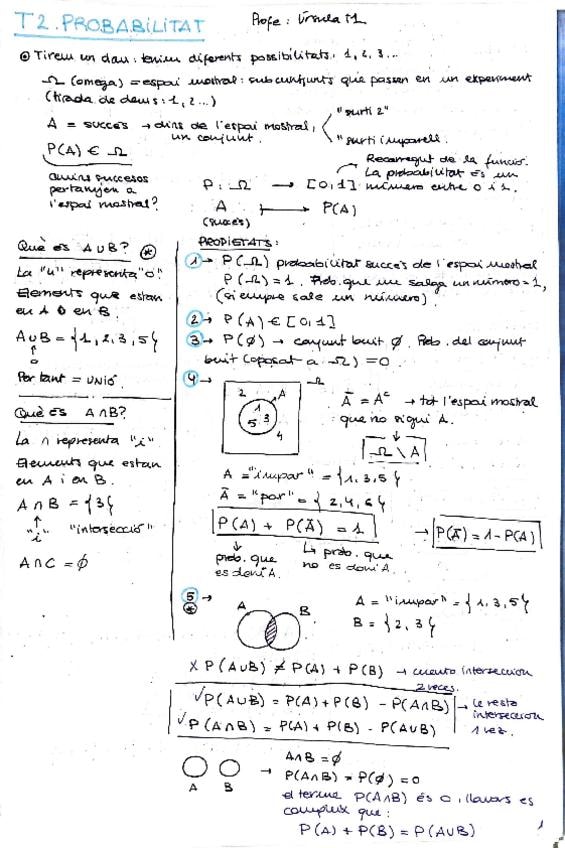 T2. PROBABILITAT
Profe: Úrsula M1
Tirem un dau: tenim diferents possibilitats: 1, 2, 3...
Ω (omega) = espai mostral: subconjunts que passen en un experiment
(tirada de daus: 1, 2...)
A = succés → dins de l'espai mostral, un conjunt.
"surti 2"
"surti imparell"
P(A) ∈ Ω
quins succesos
pertanyen a
l'espai mostral?
Recorregut de la funció.
La probabilitat és un
número entre 0 i 1.
P: Ω → [0,1]
A ↦ P(A)
(succés)
Què és A∪B? *
La "u" representa "o"
Elements que estan
en A O en B.
A∪B = {1, 2, 3, 5}
↑
o
Per tant = UNIÓ.
Què és A∩B?
La ∩ representa "i"
Elements que estan
en A i en B.
A∩B = {3}
↑
"i" "intersecció"
A∩C = ∅
PROPIETATS:
1 → P(Ω) probabilitat succés de l'espai mostral
P(Ω) = 1. Prob. que me salga un número = 1,
(siempre sale un número).
2 → P(A) ∈ [0,1]
3 → P(∅) → conjunt buit ∅. Prob. del conjunt
buit (oposat a Ω) = 0.
4 →
2 A Ω
1
5 3
4
Ā = Aᶜ → tot l'espai mostral
que no sigui A.
↓
Ω \ A
A = "impar" = {1, 3, 5}
Ā = "par" = {2, 4, 6}
P(A) + P(Ā) = 1 → P(Ā) = 1 - P(A)
↓ prob. que
es doni A.
↳ prob. que
no es doni A.
5 →
*
A B
A = "impar" = {1, 3, 5}
B = {2, 3}
X P(A∪B) ≠ P(A) + P(B) → cuento interseccion
2 veces.
✓ P(A∪B) = P(A) + P(B) - P(A∩B)
✓ P(A∩B) = P(A) + P(B) - P(A∪B)
→ le resto
interseccion
1 vez.
A B
→ A∩B = ∅
P(A∩B) = P(∅) = 0
el terme P(A∩B) és 0, llavors es
compleix que:
P(A) + P(B) = P(A∪B)
1